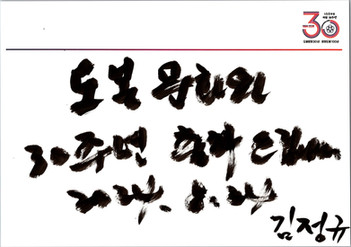 30
도봉문화원
30주년 축하 드립니다
2024. 8. 24
김정규